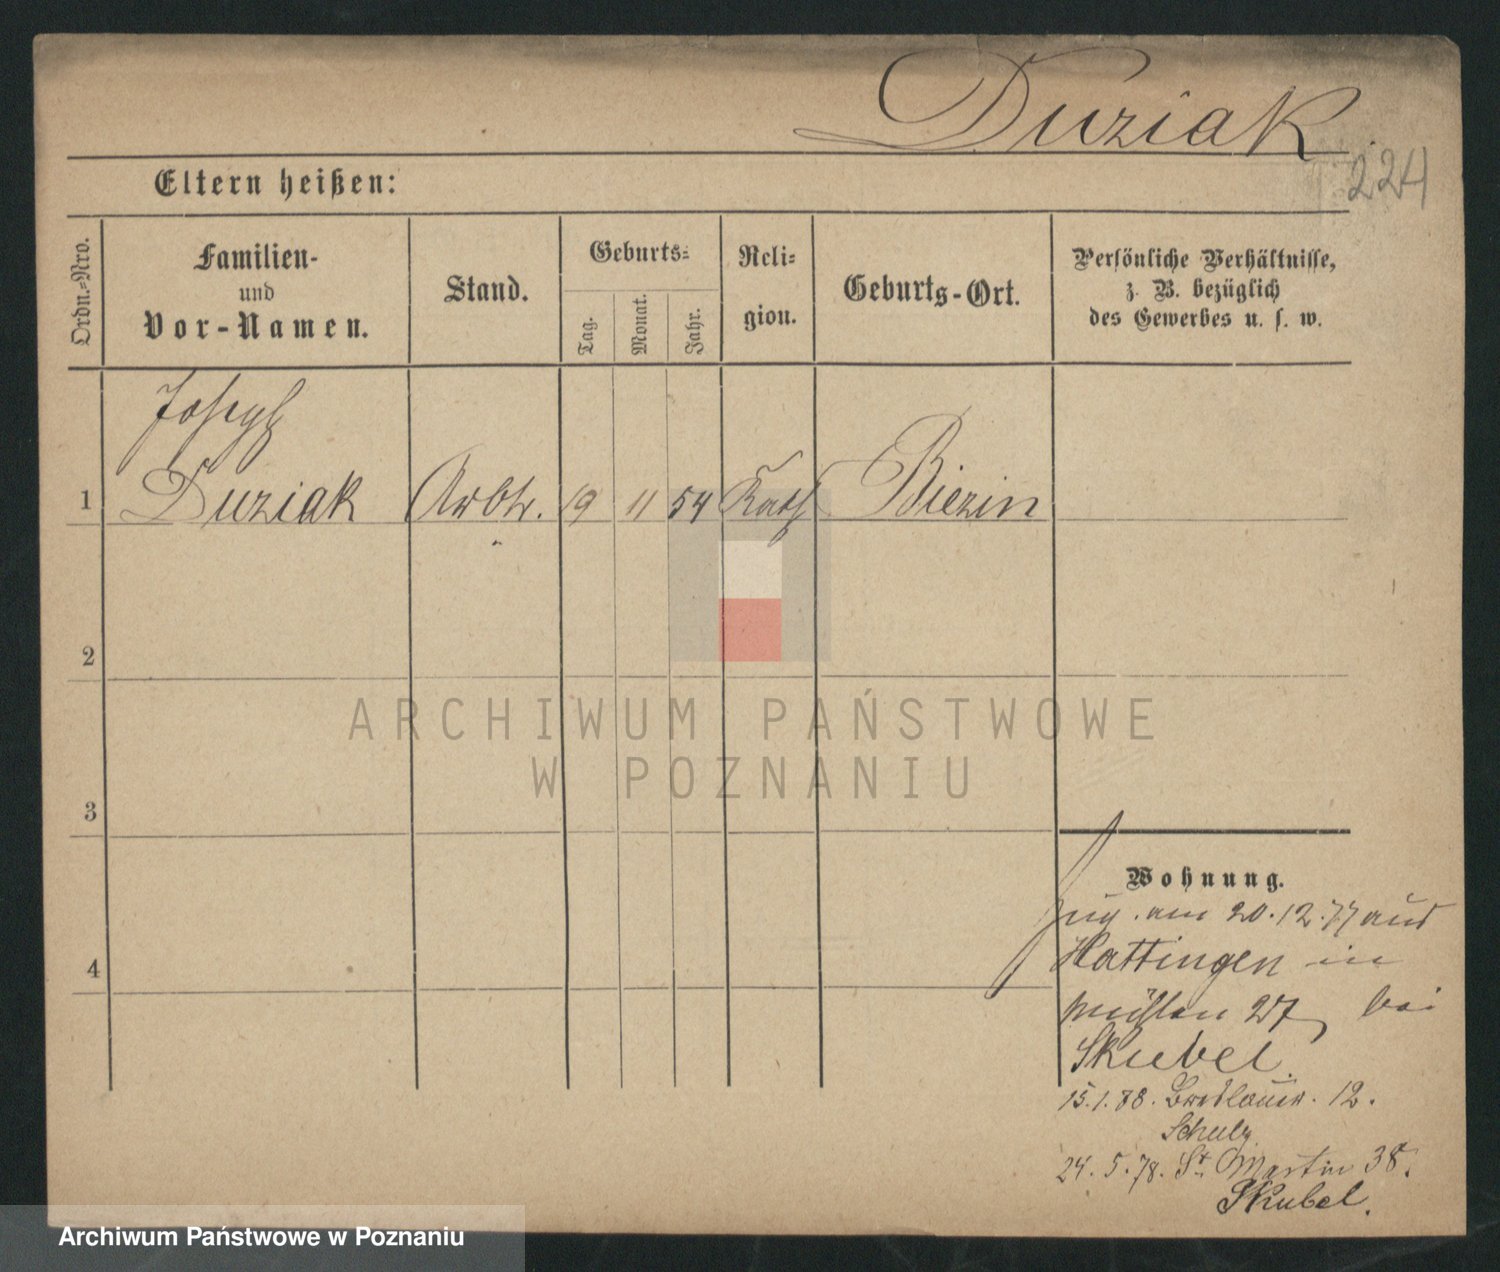 Duziak
224
Eltern heißen:
Ordn.-Nro.
Familien-
und
Vor-Namen.
Stand.
Geburts-
Tag.
Monat.
Jahr.
Reli-
gion.
Geburts-Ort.
Persönliche Verhältnisse,
z. B. bezüglich
des Gewerbes u. s. w.
Joseph
1 Duziak Arbtr. 19 11 54 Kath Biezin
2
ARCHIWUM PAŃSTWOWE
W POZNANIU
3
Wohnung.
Zug. am 20.12.77 aus
4
Hattingen in
Mühlen 27 bei
Skubel.
15.1.78. Breslauer. 12.
Schulz
24.5.78. St. Martin 38.
Skubel.
Archiwum Państwowe w Poznaniu